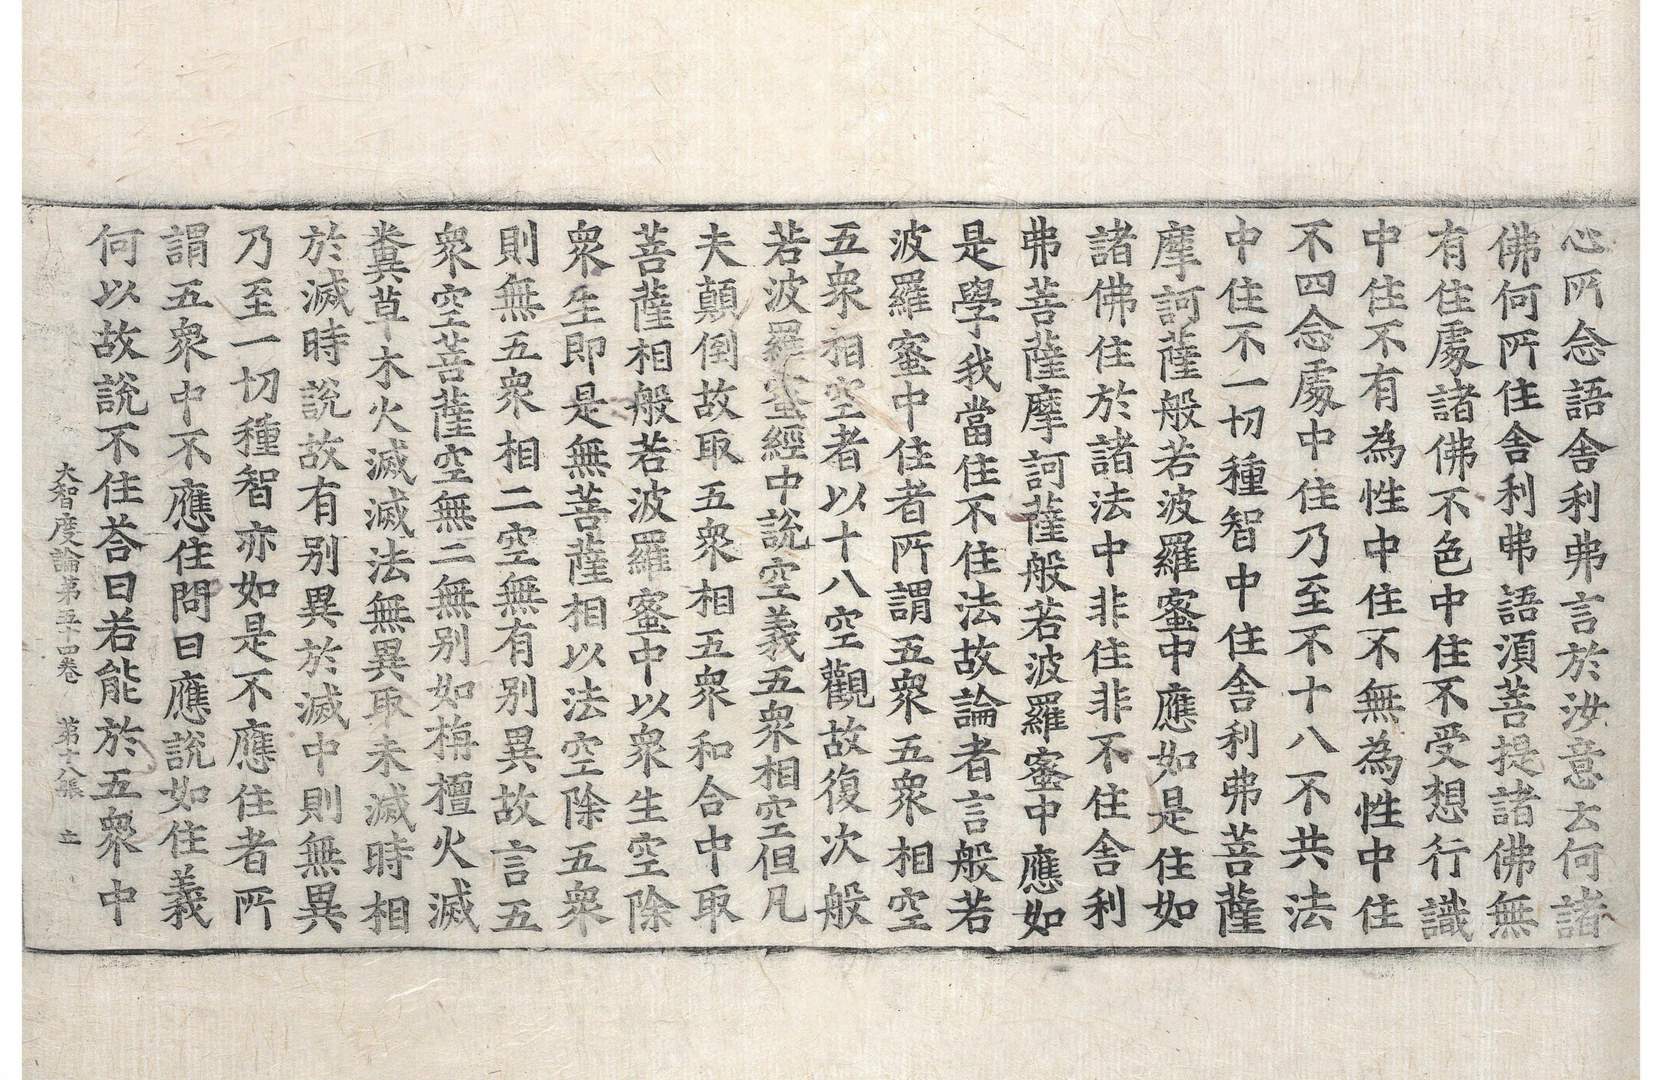 心所念語舍利弗言於汝意云何諸
佛何所住舍利弗語湏菩提諸佛無
有住處諸佛不色中住不受想行識
中住不有為性中住不無為性中住
不四念處中住乃至不十八不共法
中住不一切種智中住舍利弗菩薩
摩訶薩般若波羅蜜中應如是住如
諸佛住於諸法中非住非不住舍利
弗菩薩摩訶薩般若波羅蜜中應如
是學我當住不住法故論者言般若
波羅蜜中住者所謂五衆五衆相空
五衆相空者以十八空觀故復次般
若波羅蜜經中說空義五衆相空但凡
夫顛倒故取五衆相五衆和合中取
菩薩相般若波羅蜜中以衆生空除
衆生即是無菩薩相以法空除五衆
則無五衆相二空無有別異故言五
衆空菩薩空無二無別如栴檀火滅
糞草木火滅滅法無異取未滅時相
於滅時說故有別異於滅中則無異
乃至一切種智亦如是不應住者所
謂五衆中不應住問曰應說如住義
何以故說不住荅曰若能於五衆中
大智度論第五十四卷　第十八張　立